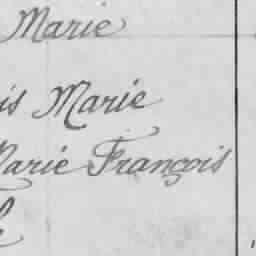 Marie
is Marie
Marie François